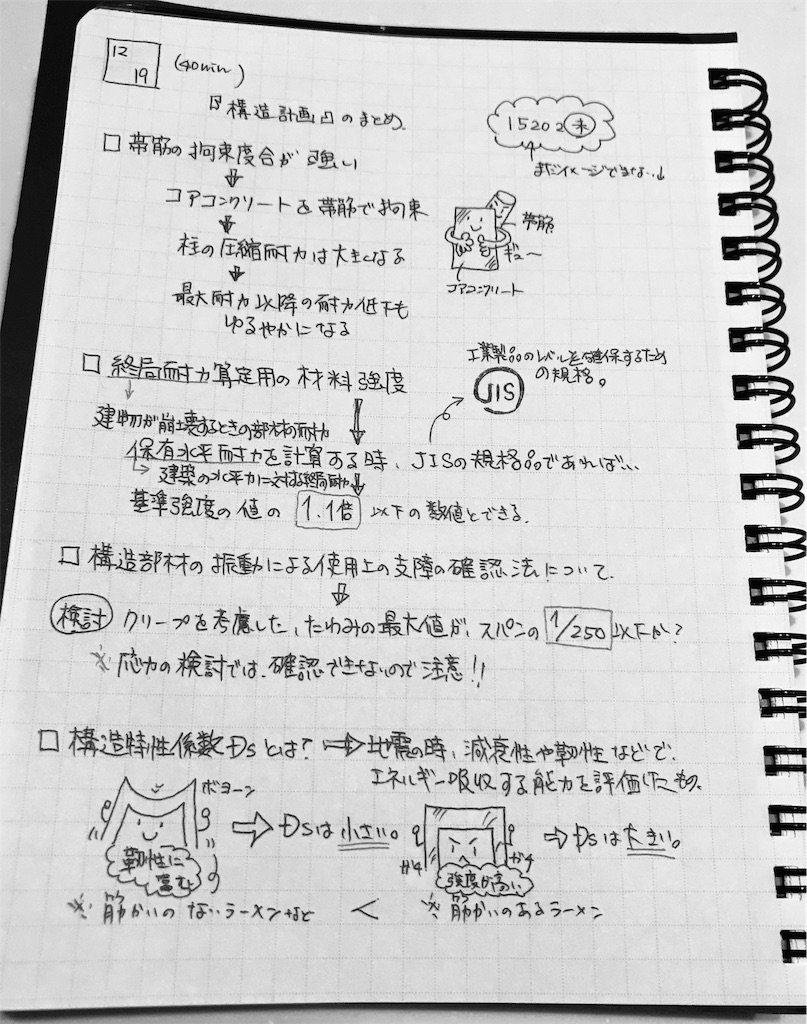 12
19
(40min)
『構造計画』のまとめ。
15202㊍
まだイメージできない↓
□ 帯筋の拘束度合が強い
コアコンクリートを帯筋で拘束
柱の圧縮耐力は大きくなる
最大耐力以降の耐力低下も
ゆるやかになる
帯筋
ギュー
コアコンクリート
□ 終局耐力算定用の材料強度
工業製品のレベルを確保するため
の規格。
JIS
建物が崩壊するときの部材の耐力
保有水平耐力を計算する時、JISの規格品であれば…
建築の水平力に対する終局耐力
基準強度の値の 1.1倍 以下の数値とできる。
□ 構造部材の振動による使用上の支障の確認法について。
検討 クリープを考慮した、たわみの最大値が、スパンの 1/250 以下か?
※ 応力の検討では、確認できないので注意!!
□ 構造特性係数Dsとは? ⇒地震の時、減衰性や靭性などで、
エネルギー吸収する能力を評価したもの。
ボヨーン
靭性に
富む
⇒ Dsは小さい。
ガチ
ガチ
強度が高い
⇒ Dsは大きい。
※ 筋かいのないラーメンなど < ※ 筋かいのあるラーメン